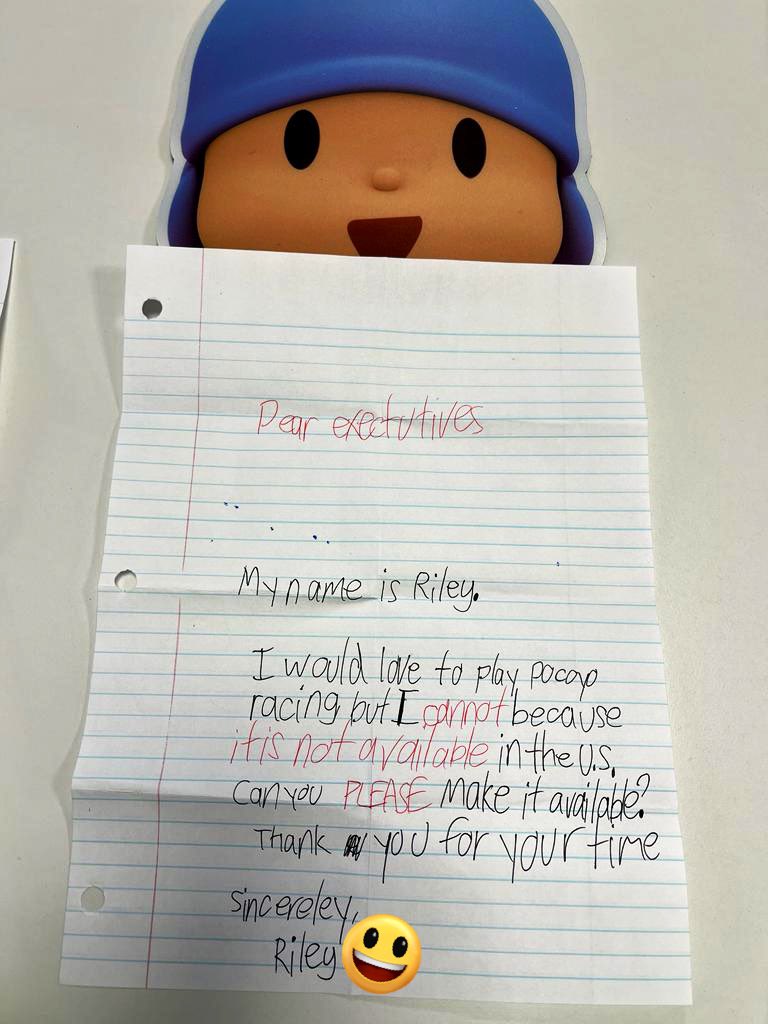 Dear exectutives
My name is Riley.
I would love to play pocoyo
racing but I cannot because
it is not available in the U.S.
Can you PLEASE make it available?
Thank you for your time
sincereley,
Riley